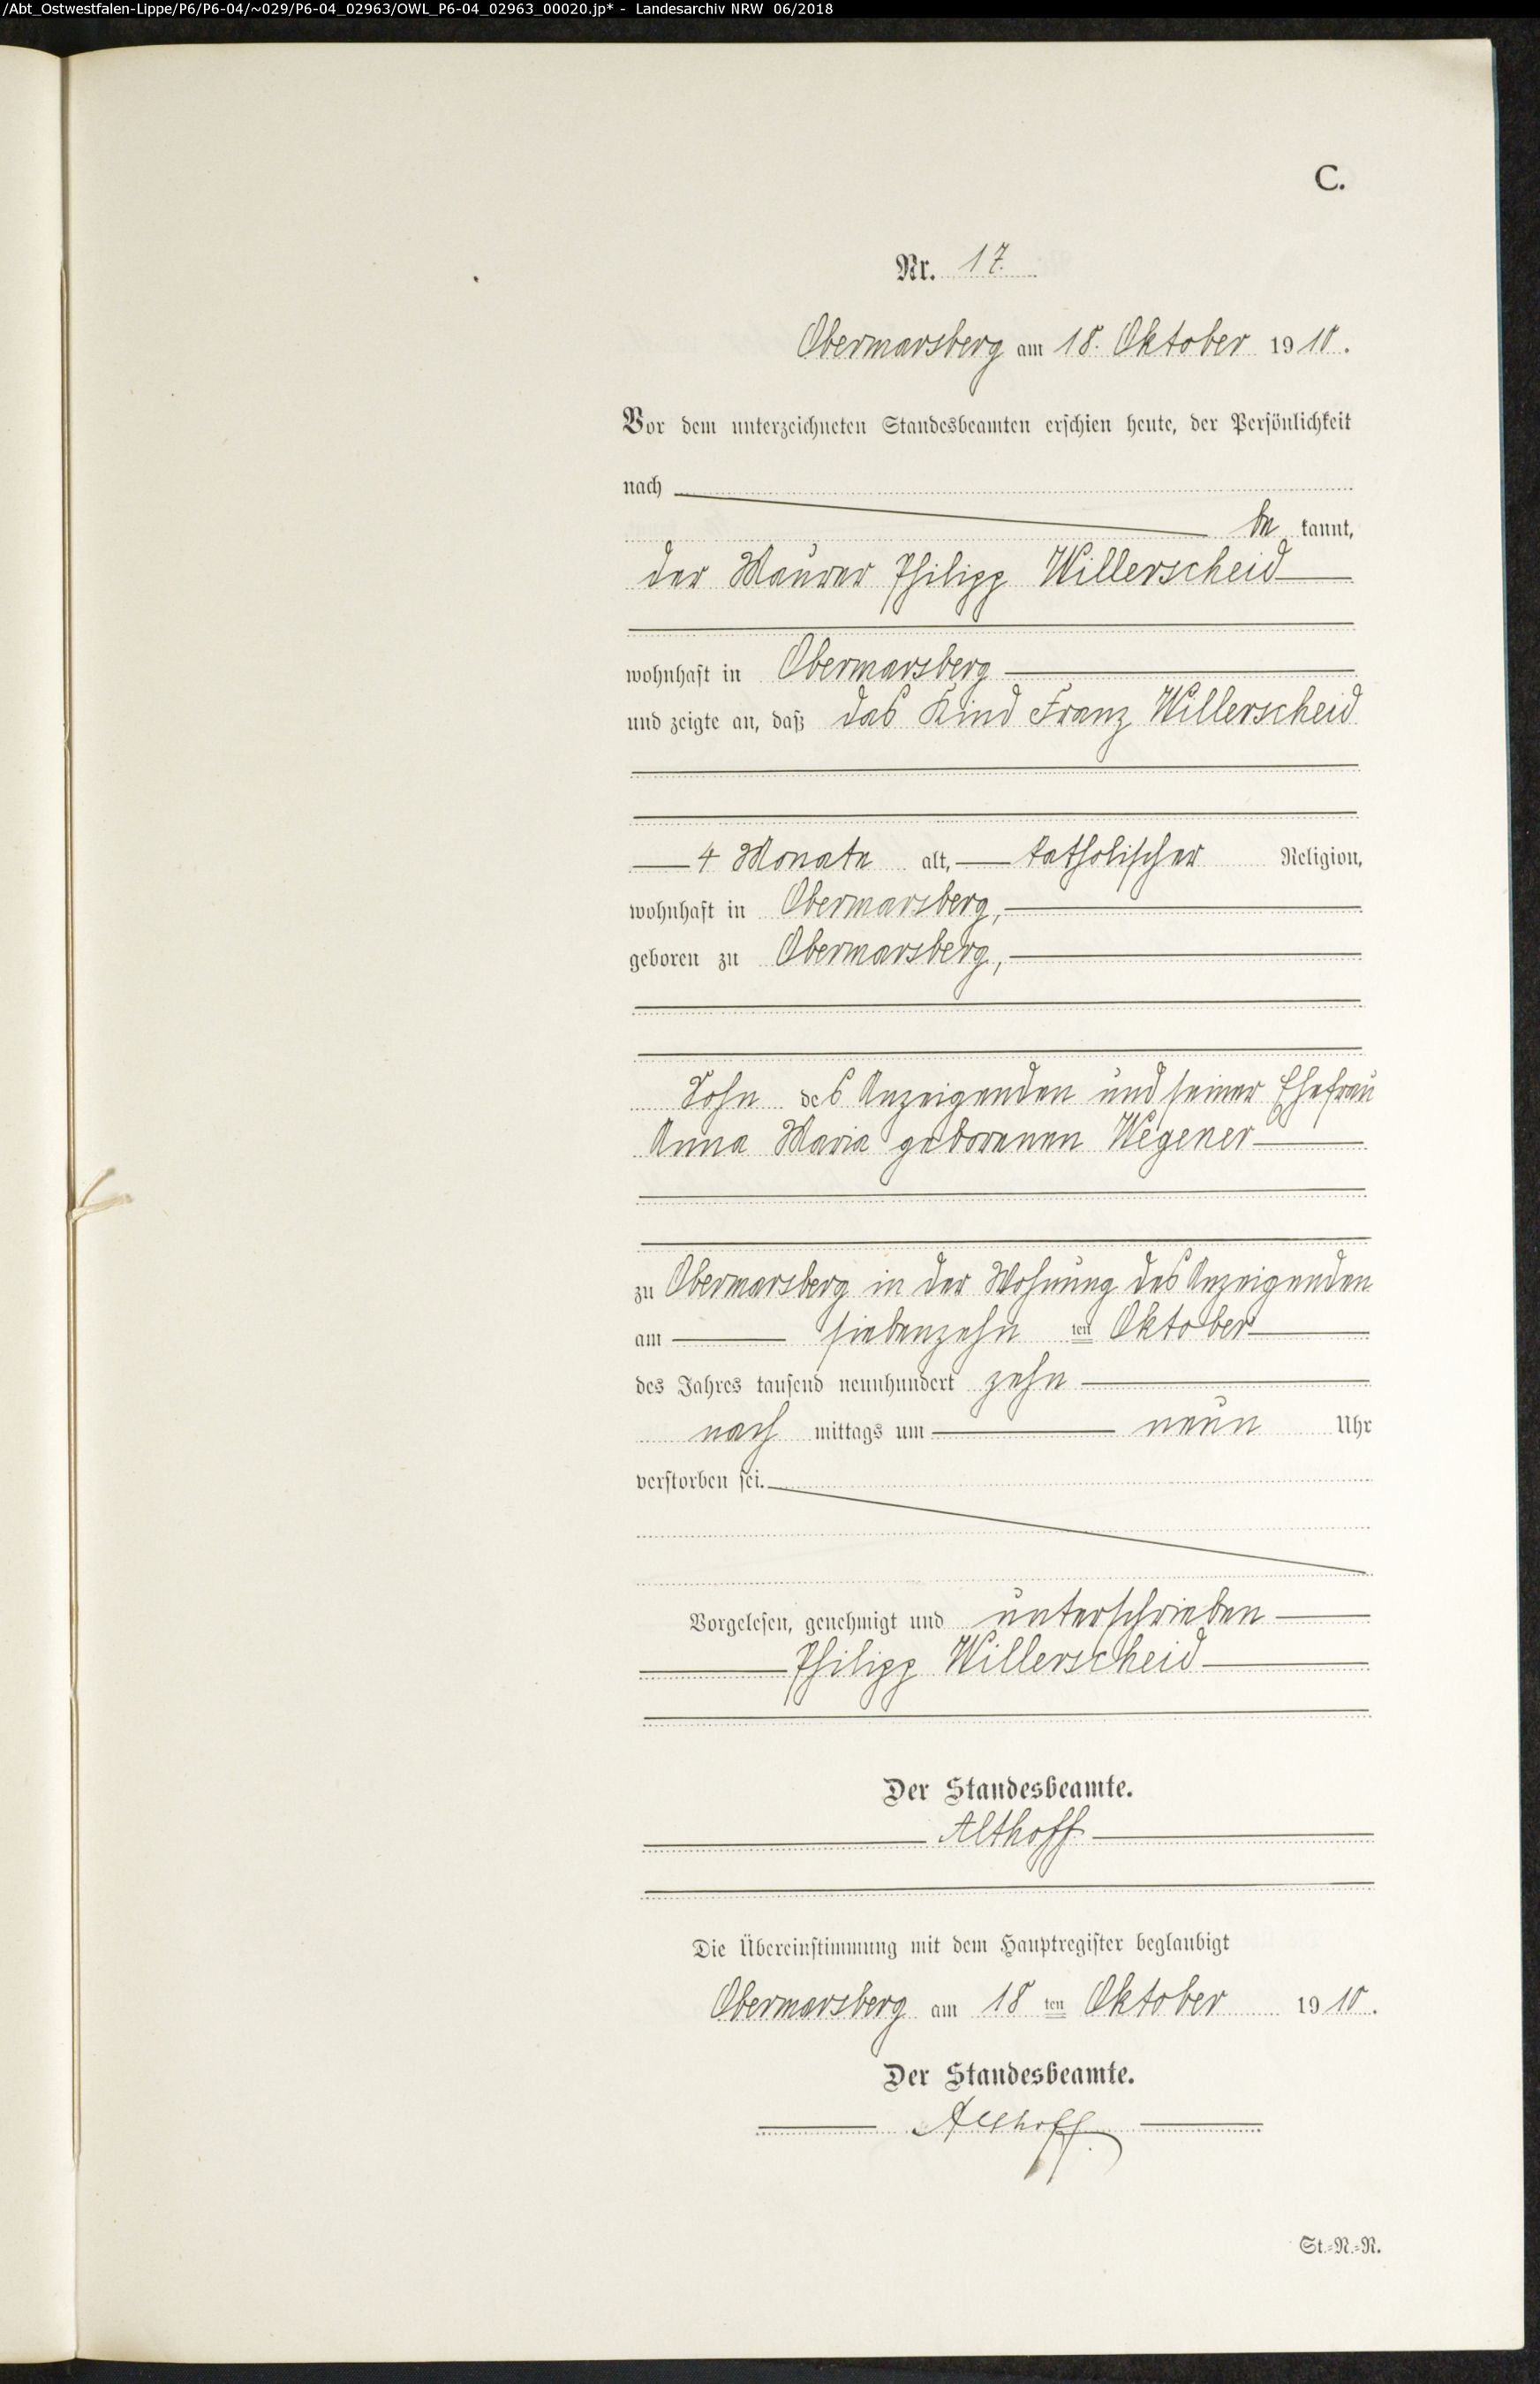 /Abt_Ostwestfalen-Lippe/P6/P6-04/~029/P6-04_02963/OWL_P6-04_02963_00020.jp* - Landesarchiv NRW 06/2018
C.
Nr. 17.
Obermarsberg am 18. Oktober 1910.
Vor dem unterzeichneten Standesbeamten erschien heute, der Persönlichkeit
nach
be kannt,
der Maurer Philipp Willerscheid
wohnhaft in Obermarsberg
und zeigte an, daß das Kind Franz Willerscheid
4 Monate alt, katholischer Religion,
wohnhaft in Obermarsberg,
geboren zu Obermarsberg,
Sohn des Anzeigenden und seiner Ehefrau
Anna Maria geborenen Wegener
zu Obermarsberg in der Wohnung des Anzeigenden
am siebenzehn ten Oktober
des Jahres tausend neunhundert zehn
nach mittags um neun Uhr
verstorben sei.
Vorgelesen, genehmigt und unterschrieben
Philipp Willerscheid
Der Standesbeamte.
Althoff
Die Übereinstimmung mit dem Hauptregister beglaubigt
Obermarsberg am 18 ten Oktober 1910.
Der Standesbeamte.
Althoff
St.=N.=R.